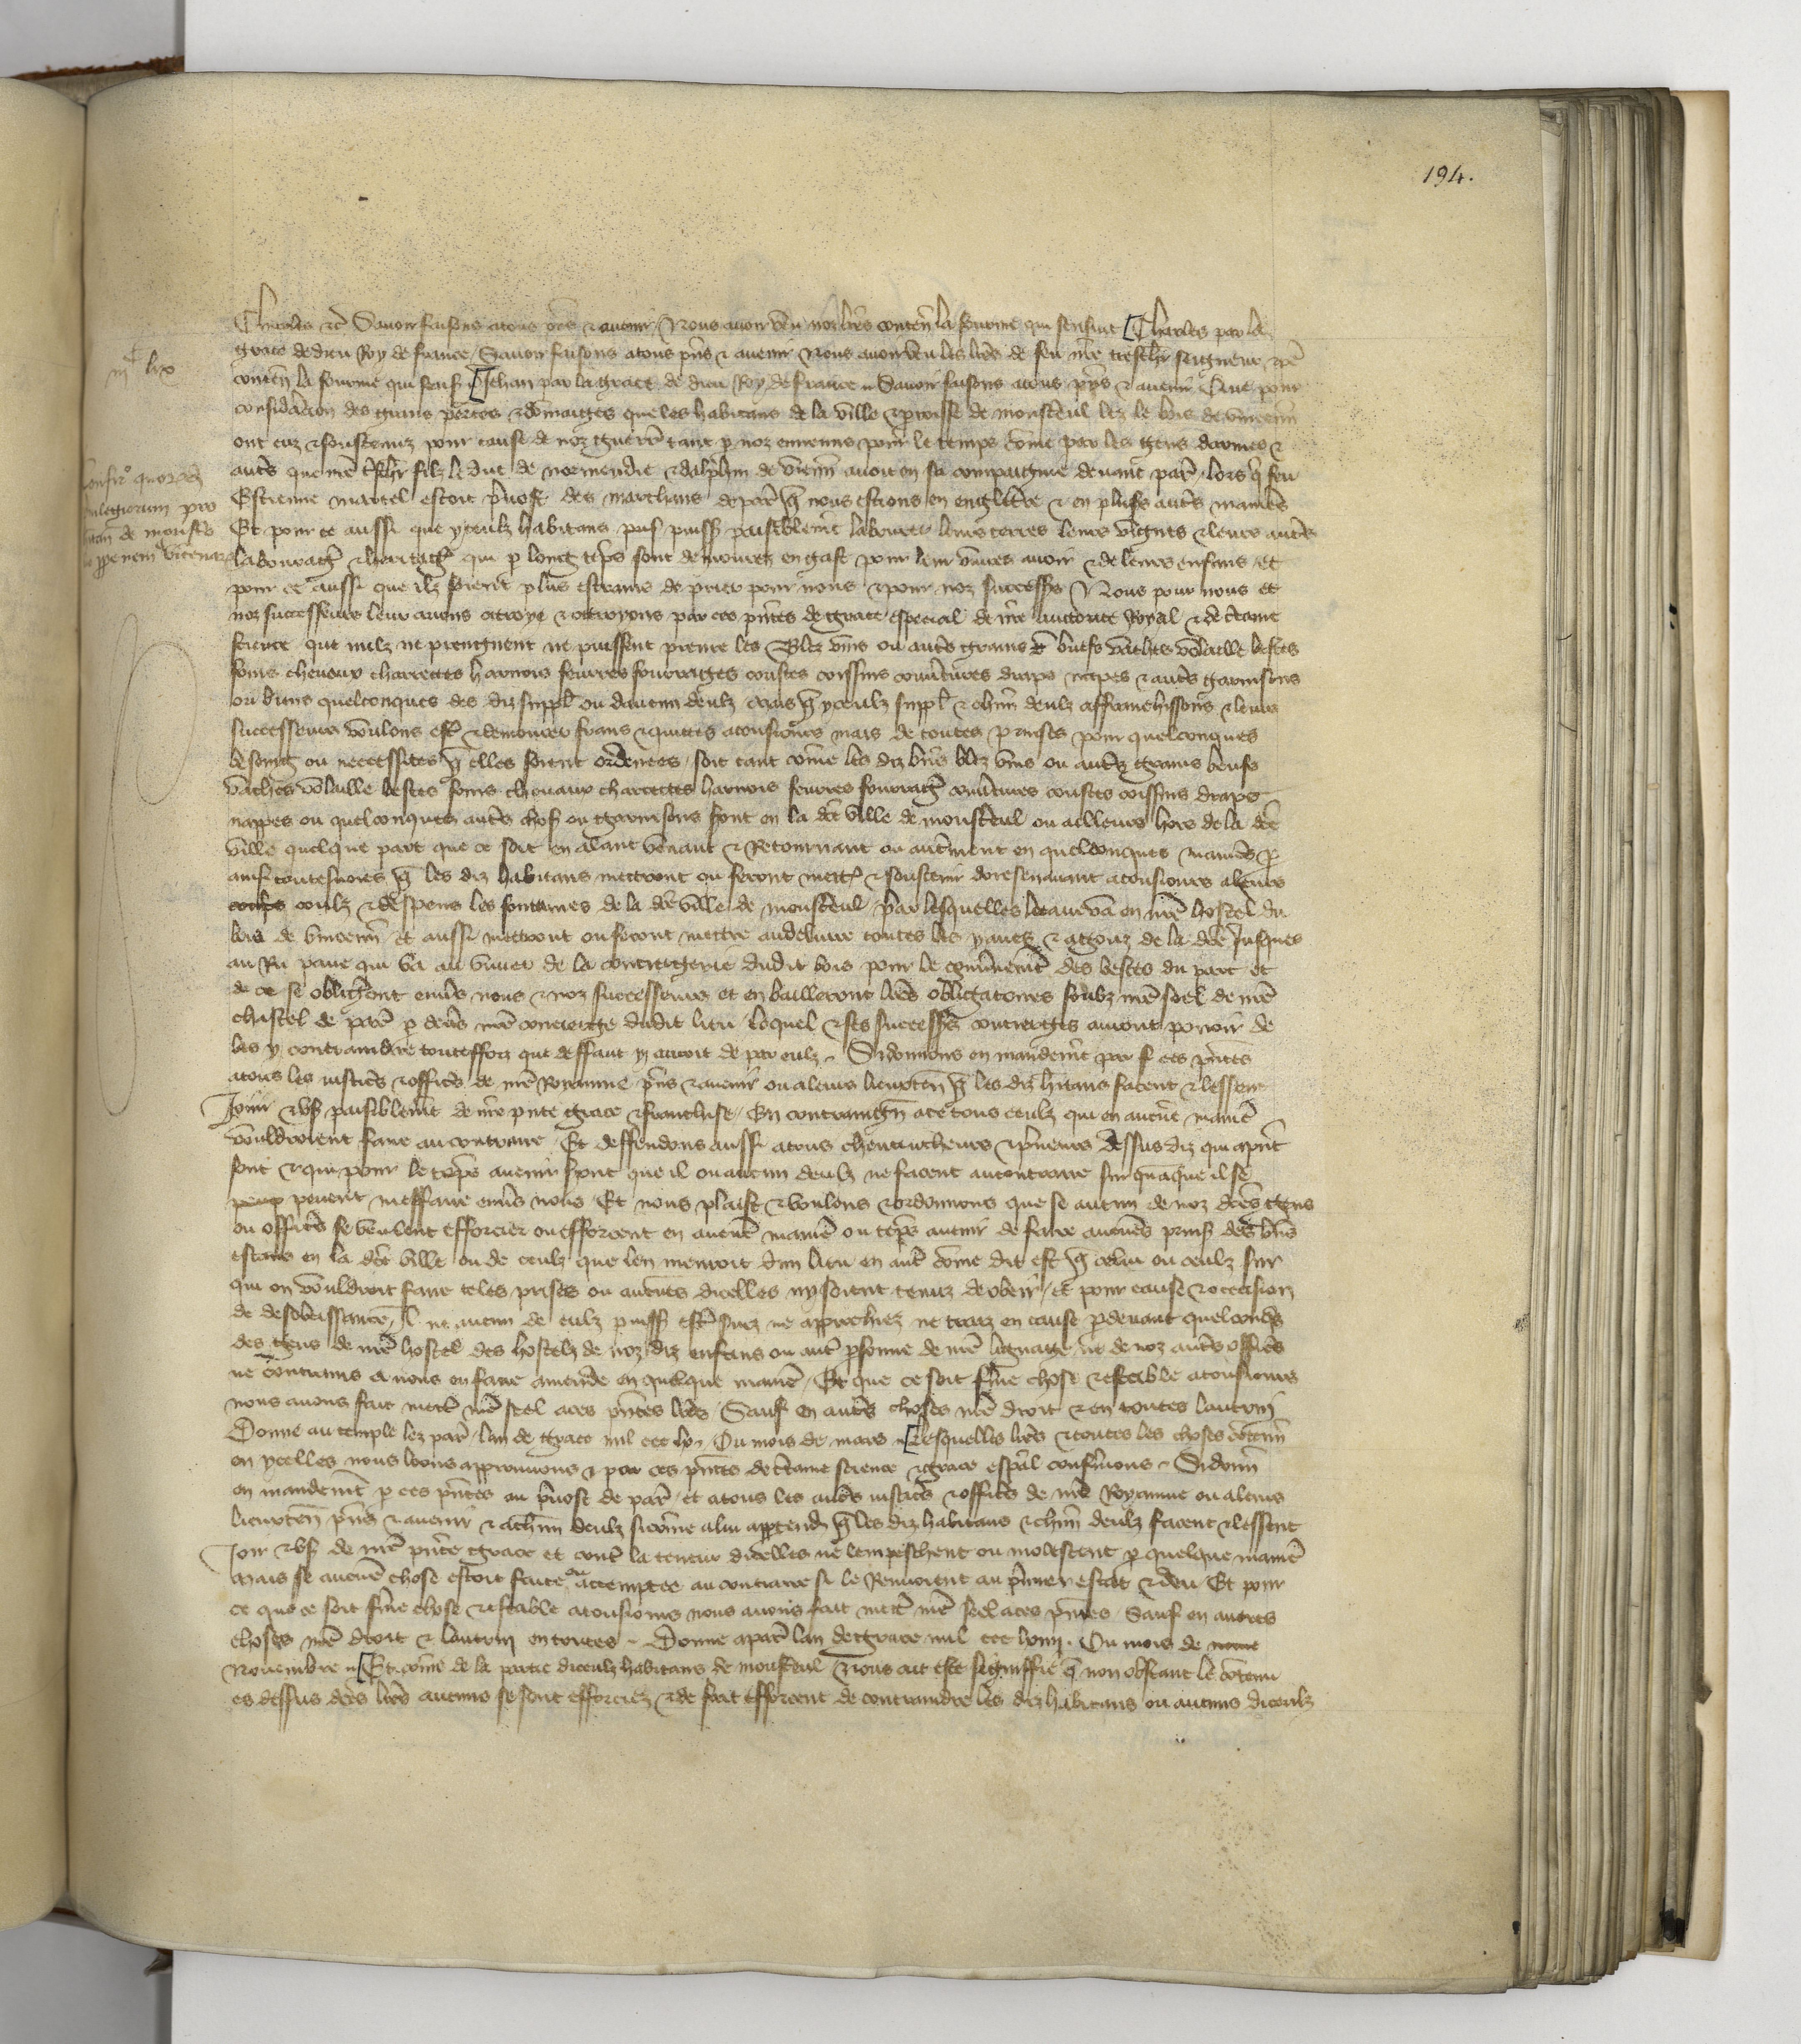 194.
Charles etc Savoir faisons a tous pns et avenir Nous avons veu noz lres conten la fourme qui sensuit [Charles par la
grace de dieu Roy de france Savoir faisons a tous pns et avenir Nous avons veu les lres de feu nre treschr seigneur et pe
conten la fourme qui sensuit [Jehan par la grace de dieu Roy de france Savoir faisons a tous pns et avenir Que pour
consideracion des grans pertes et dommaiges que les habitans de la ville et proisse de monsteul lez le bois de vincenn
ont euz et soustenuz pour cause de noz guerres tant p noz ennemis pour le temps come par les gens darmes et
autes que nre tschr filz le duc de normendie et dalphin de vienn avoit en sa compaignie devant par lors q feu
Estienne marcel estoit pvost des marchans de par q nous estions en engletre et en plusrs autes manies
Et pour ce aussi que yceulz habitans puis puissent paisiblement labourer leurs terres leurs vignes et leurs autes
labourages et heritages qui p long temps sont demourez en gast pour leur vivres avoir et de leurs enfans et
pour ce aussi que ilz soient plus estrains de prier pour nous et pour noz successrs Nous pour nous et
noz successeurs leur avons ottroye et ottroyons par ces pntes de grace especial de nre auctorite Royal et de ctaine
science que nulz ne prengnent ne puissent prenre les blez vins ou autes grains buefs vaches volaille bestes
foins chevaux charrettes harnois feurres fourrages coustes coissins couvtures draps nappes et autes garnisons
ou biens quelconques des diz suppl ou daucun deulz mais q yceulz suppl et chun deulz affranchissons et leurs
successeurs voulons est et demourer frans et quittes a tousjours mais de toutes prinses pour quelconques
besoing ou necessites q elles soient ordenees soit tant come les diz biens blez vins ou autes grains buefs
vaches volaille bestes foins chevaux charettes harnois feurres fourrages couvtures coustes coissins draps
nappes ou quelconques autes choses ou garnisons sont en la dce ville de monsteul ou ailleurs hors de la dce
ville quelque part que ce soit en alant venant et Retournant ou autment en quelconques manies p
ainsi toutesvoies q les diz habitans mettront ou feront mett et soustenir doresenavant a tousjours a leurs
couls et despens les fontaines de la dce ville de monsteul par lesquelles leaue va en nre hostel du
bois de vincenn et aussi mettront ou feront mettre au delivre toutes les yaues et agouz de la dce jusques
au Ru pave qui va au vivier de la conciergerie dudit bois pour le gouvnement des bestes du parc et
de ce se obligeront envs nous et noz successeurs et en bailleront lres obligatoires soubz nre seel de nre
chastel de par p devs nre concierge dudit lieu lequel et ses successrs concierges auront povoir de
les y contraindre touteffoiz que deffaut y auroit de par eulz Si donnons en mandement par ces pntes
a tous les justics et offics de nre Royaume pns et avenir ou a leurs lieuxten q les diz hitans facent et lessent
Joir et user paisiblement de nre pnte grace et franchise En contraingn a ce tous ceulz qui en aucune manie
vouldroient faire au contraire Et deffendons aussi a tous chevaucheurs et pneurs dessus diz qui a pnt
sont et qui pour le temps avenir seront que il ou aucun deulz ne facent au contraire sur quanque il se
pevent meffaire envs nous Et nous plaist et voulons et ordonnons que se aucun de noz dces gens
ou offics se veulent efforcier ou efforcent en aucune manie ou temps avenir de faire aucunes prises des biens
estans en la dce ville ou de ceulz que len menroit dun lieu en autre come dit est q celui ou ceulz sur
qui on vouldroit faire teles prises ou aucunes dicelles ny soient tenuz de obeir et pour cause et occasion
de desobeissance ne aucun de eulz puisse estre suiz ne approchiez ne traiz en cause pdevant quelconques
des gens de nre hostel des hostelz de noz diz enfans ou autre psonne de nre lignage ne de noz autes offics
ne contrains a nous en faire amende en quelque manie Et que ce soit ferme chose et estable a tousjours
nous avons fait mett nre seel a ces pntes lres Sauf en autes choses nre droit et en toutes lautruy
Donne au temple lez par lan de grace mil ccc lx Ou mois de mars [Lesquelles lres et toutes les choses conten
en ycelles nous loons approuvons et par ces pntes de ctaine science et grace espal confmons Si donn
en mandement p ces pntes au pvost de par et a tous les autes justics et offics de nre Royaume ou a leurs
lieuxten pns et avenir et a chun deulz sicome a lui append q les diz habitans et chun deulz facent et lessent
Joir et user de nre pnte grace et contre la teneur dicelles ne lempeschent ou molestent p quelque manie
Mais se aucune chose estoit faite ou attemptee au contraire si le Remettent au pmier estat et deu Et pour
ce que ce soit ferme chose et estable a tousjours nous avons fait mett nre seel a ces pntes Sauf en autres
choses nre droit et lautruy en toutes Donne a par lan de grace mil ccc lxiiii Ou mois de
Novembre [Et come de la partie diceulz habitans de monsteul Nous ait este signiffie q non obstant le contenu
es dessus dces lres aucuns se sont efforciez et de fait efforcent de contraindre les diz habitans ou aucuns diceulz